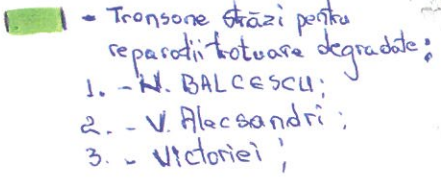 - Tronsone străzi pentru
reparatii trotuare degradate:
1. - N. BALCESCU;
2. - V. Alecsandri;
3. - Victoriei;